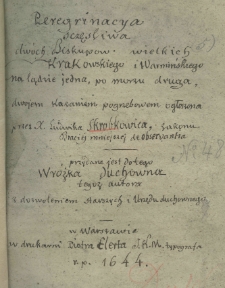 Peregrinacya
sczęśliwa
dwóch Biskupów wielkich
Krakowskiego i Warmińskiego
na lądzie jedna, po morzu druga,
dwojem kazaniem pogrzebowem ogłoszona
przez X. Ludwika Skrobkowica, zakonu
Braciej mniejszej de observantia
przydana jest do tego
Wróżka duchowna
tegoż autora
z dozwoleniem starszych i Urzędu duchownego
w Warszawie
w drukarni Piotra Elerta J.K.M. typografa
r.p. 1644.